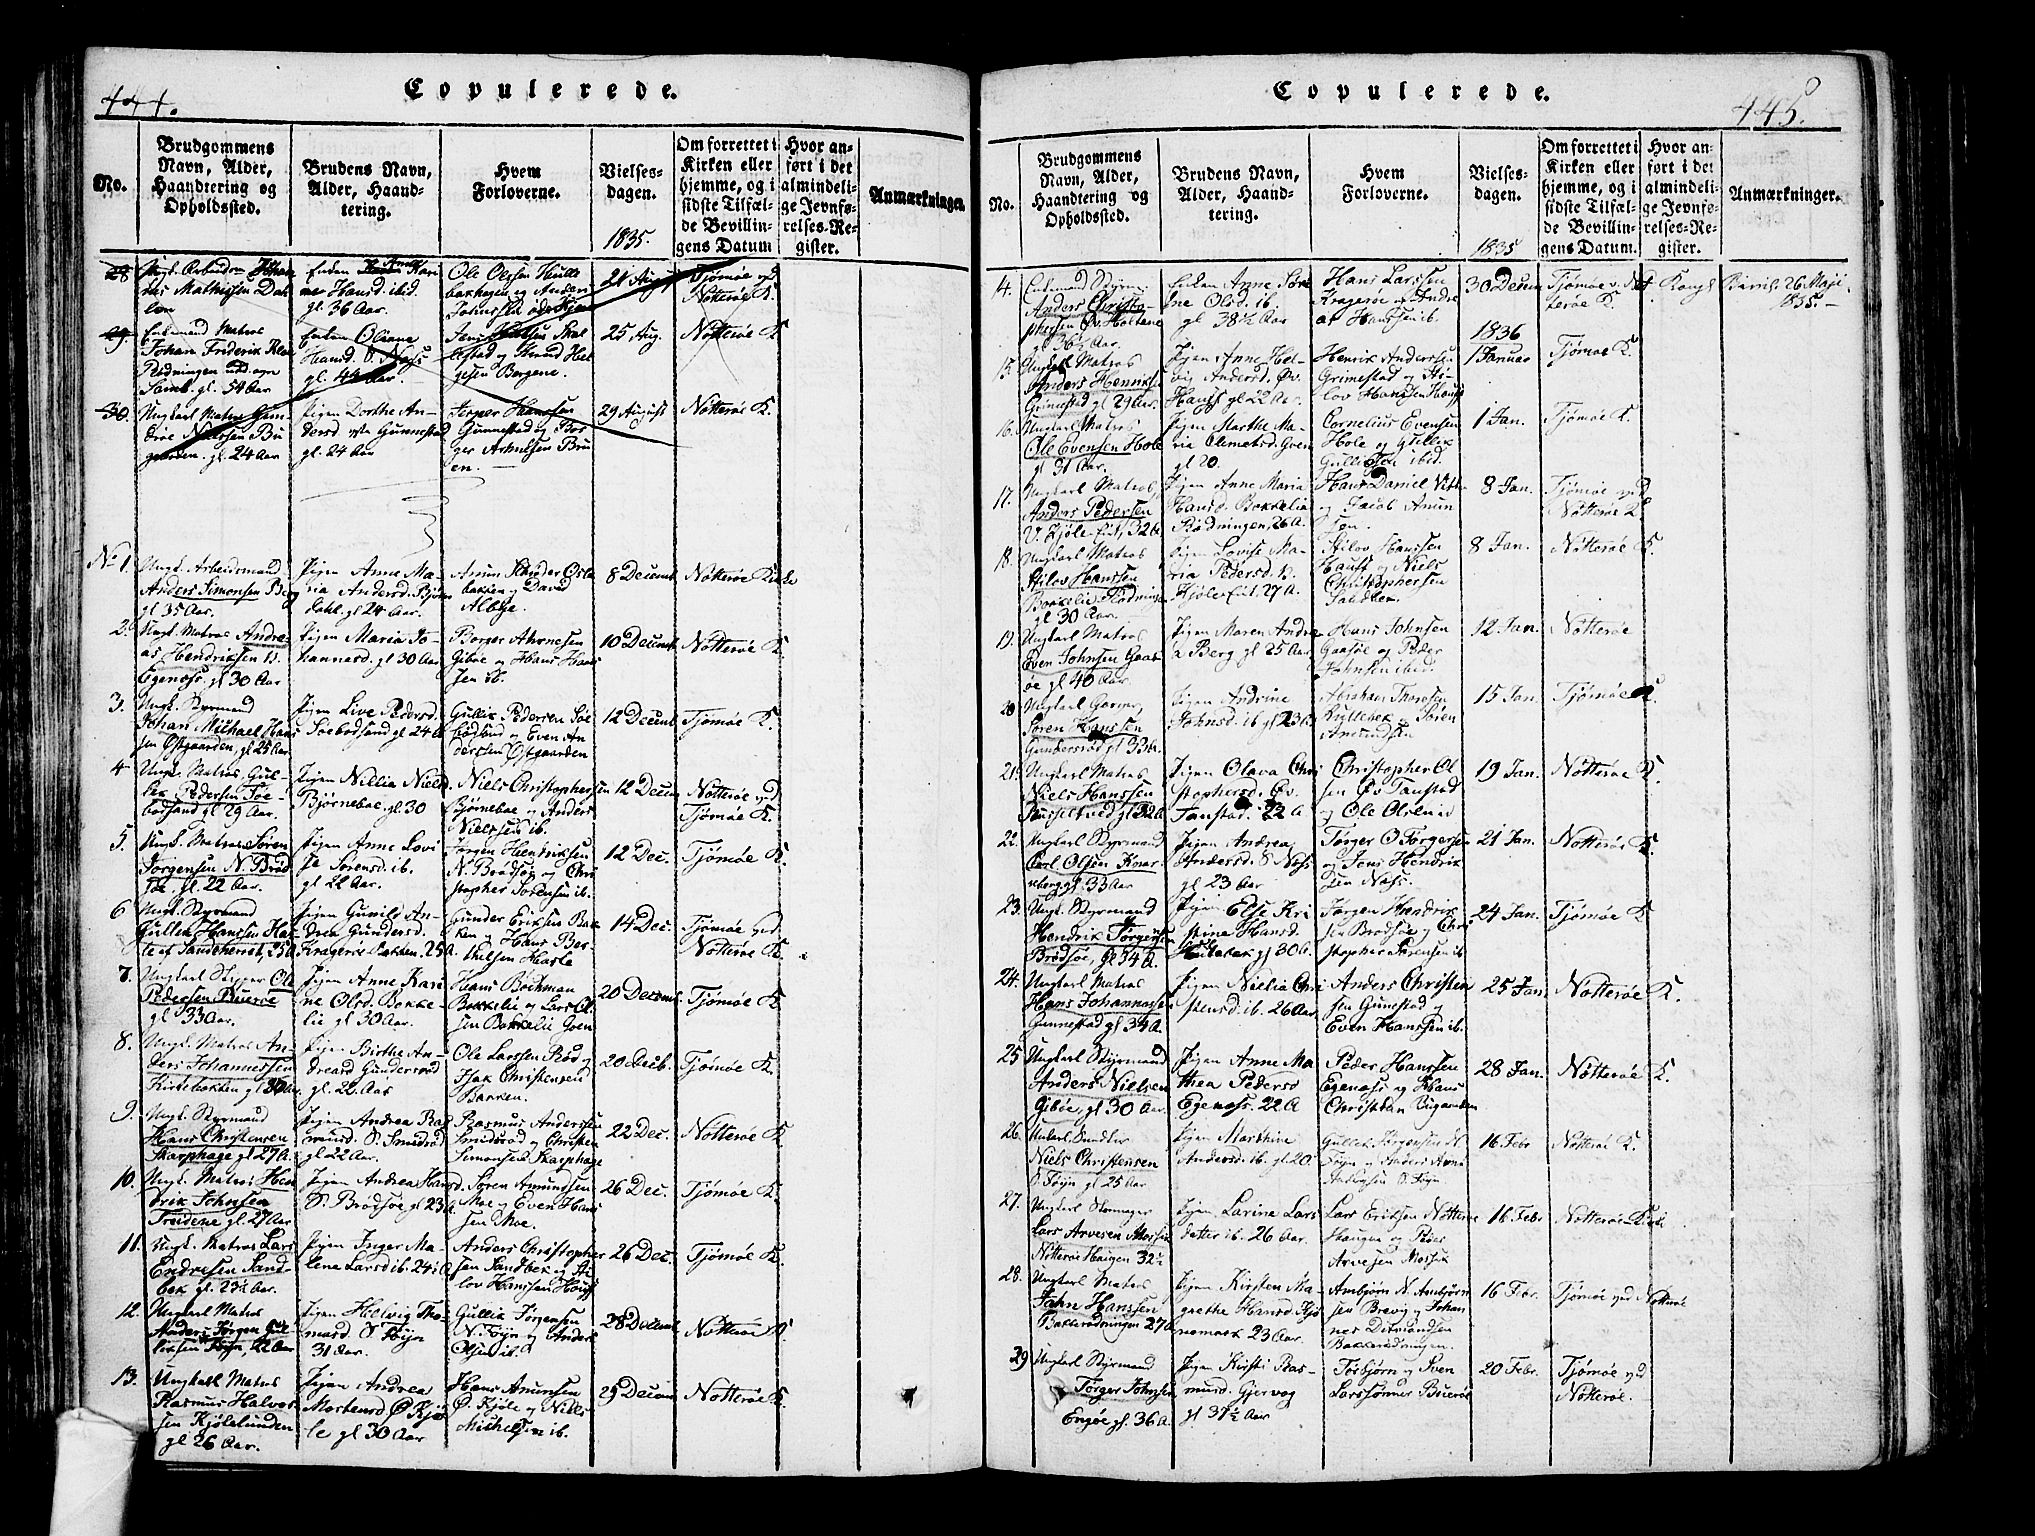 444.
Copulerede.
No.
Brudgommens
Navn, Alder,
Haandtering og
Opholdssted.
Brudens Navn,
Alder, Haand-
tering.
Hvem
Forloverne.
Vielses-
dagen.
1835.
Om forrettet i
Kirken eller
hjemme, og i
sidste Tilfæl-
de Bevillin-
gens Datum
Hvor an-
ført i det
almindeli-
ge Jevnfø-
relses-Re-
gister.
Anmærkninger.
28
Ungk. Arbeidsm
Mathissen
Enken Anne Kari
ne Hansd. ibid.
gl. 36 Aar.
Ole Olssen
21 Aug
Tjømøe ved
Nøtterøe K.
29.
Enkemand Matros
Johan Frederik
Rødningen
gl. 54 Aar
Enken Oleane
Hansd. Ø. Næss
gl. 44 Aar.
og Knud Hel
gesen Bergene.
25 Aug.
Nøtterøe K.
30.
Ungkarl Matros
Nielssen Bu
gaarden. gl. 24 Aar
Pigen Dorthe An-
dersd. Gunnestad
gl. 24 Aar
Jesper Hanssen
Gunnestad og Bor
ger
en.
29 August
Nøtterøe K.
No 1.
Ungk. Arbeidsmand
Anders Simonsen Berg
gl 35 Aar.
Pigen Anne Ma-
ria Andersd. Bjørn
dahl gl 24 Aar.
bakken og David
8 Decemb
Nøtterøe Kirke
2.
Ungk. Matros Andre-
as Hendriksen N.
Egenæss. gl 30 Aar
Pigen Maria Jo-
hannesd. gl 30 Aar
Gibøe og Hans Hans
sen ib.
10 Decemb.
Nøtterøe K.
3.
Ungk. Styrmand
Johan Michael Hans
sen Østgaarden, gl 25 Aar
Pigen Live Pedersd.
Søebodsand gl 24 A
Gullik Pedersen Søe
bodsand og Even An
dersen Østgaarden
12 Decemb.
Tjømøe K.
4
Ungk. Matros Gul-
lik Pedersen Søe-
bodsand gl 29 Aar.
Pigen Nillia Nielsd.
Bjørneboe, gl. 30
Niels Christophersen
Bjørnebae og Anders
Nielssen ib.
12 Decem
Nøtterøe ved
Tjømøe K.
5.
Ungk. Matros Søren
Jørgensen N. Brød
søe, gl. 22 Aar.
Pigen Anne Lovi
se Sørensd. ib.
gl 22 Aar.
Jørgen Hendriksen
N. Brødsøe og Chri
stopher Sørensen ib.
12 Dec.
Tjømøe K.
6
Ungk. Styrmand
Gullik Hanssen Has-
le af Sandeherret, 25 A
Pigen Gunild An-
drea Gundersd.
Kragerøe Bakken. 25 A
Gunder Eriksen Bak
ken og Hans Ber-
thelsen Hasle
14 Dec.
Tjømøe ved
Nøtterøe K.
7.
Ungkarl Skipper Ole
Pedersen Buerøe
gl 33 Aar.
Pigen Anne Kari
ne Olsd. Bakke-
lie gl 30 Aar.
Hans Bøckman
Bakkelie og Lars Ol
sen Bakkelie Gven
20 Decemb.
Tjømøe K.
8.
Ungk. Matros An-
ders Johannessen
Kirkebakken gl 30 Aar
Pigen Birthe An-
dreard Gundersrød
gl. 22 Aar
Ole Larssen Rød og
Isak Christensen
Bakken.
20 Decb.
Tjømøe K.
9.
Ungk. Styrmand
Hans Christensen
Skarphage gl 27 A.
Pigen Andrea Ras
musd. Ø. Smidsrød
gl 22 Aar.
Rasmus Anderssen
Smidsrød og Christen
Simonsen Skarphage
22 Dec.
Nøtterøe K
10.
Ungk. Matros Hen
drik Johnsen
Treidene gl. 27 Aar
Pigen Andrea Hansd.
S. Brødsøe gl 23 A.
Søren Amundsen
Moe og Even Hans
sen Moe.
26 Dec.
Tjømøe K.
11.
Ungk. Matros Lars
Endresen Sand-
bek gl. 23½ Aar.
Pigen Inger Ma-
lena Larsd ib. 24½ A
Anders Christopher
sen Sandbek og Sti
lov Hanssen Houss
26 Dec.
Tjømøe K.
12.
Ungkarl Matros
Anders Jørgen Gul
liksen Føyn, 22 Aar
Pigen Helvig Tho
masd. S. Føyn
31 Aar.
Gullik Jørgensen
N. Føyn og Anders
Olsen ib.
28 Decemb
Nøtterøe K.
13.
Ungkarl Matros
Rasmus Halvor
sen Kjølelunden
gl 26 Aar.
Pigen Andrea
Mortensd Ø Kjø
le gl 30 Aar
Hans Anunsen
Ø. Kjøle og Niels
Michelsen ib.
29 Decem
Nøtterøe K.
445.
Copulerede.
No.
Brudgommens
Navn, Alder,
Haandtering og
Opholdssted.
Brudens Navn,
Alder, Haand-
tering.
Hvem
Forloverne.
Vielses-
dagen.
1835
Om forrettet i
Kirken eller
hjemme, og i
sidste Tilfæl-
de Bevillin-
gens Datum.
Hvor an-
ført i det
almindeli-
ge Jevnfø-
relses-Re-
gister.
Anmærkninger.
14.
Enkemand Skipper
Anders Christo-
phersen Øv. Holtane
gl 36½ Aar.
Enken Anne Sør
ine Olsd. ib.
gl 38½ Aar
Hans Larssen
Kragerøe og Andre
as Hanssen ib.
30 Decem
Tjømøe v. Nøt
terøe K.
Kongl
26 Maji
1835.
1836
15.
Ungkarl Matros
Anders Henriksen
Grimestad gl 29 Aar.
Pigen Anne Hel-
vig Andersd. Øv.
Hauss gl 22 Aar.
Henrik Anderssen
Grimestad og Sti-
lov Hanssen Houss
1 Januar
Tjømøe K.
16.
Ungkarl Matros
Ole Evensen Hole
gl 31 Aar.
Pigen Marthe Ma-
ria Clemetsd. Gven
gl 20.
Cornelius Evensen
Hole og Gullik
ibid.
1 Jan.
Tjømøe K.
17.
Ungkarl Matros
Anders Pedersen
V. Kjøle Eie, 32 A
Pigen Anne Maria
Hansd. Bakkelia
Rødningen, 26 A.
Hans Daniel
og Jacob Amun
8 Jan.
Tjømøe ved
Nøtterøe K
18.
Ungkarl Matros
Stilov Hanssen
Bakkelie Rødningen
gl 30 Aar.
Pigen Lovise Ma-
ria Pedersd. V.
Kjøle Eie. 27 A.
Stilov Hanssen
Hauss og Niels
Christophersen
Sandbek.
8 Jan.
Nøtterøe K.
19.
Ungkarl Matros
Even Johnsen Gaas
øe gl 40 Aar.
Pigen Maren Andre
a Berg gl 25 Aar.
Hans Johnsen
Gaasøe og Peder
Johnsen ibid.
12 Jan.
Nøtterøe
20
Ungkarl
Søren Hanssen
Gundersrød gl 33 Ar.
Pigen Andrine
Johnsd. ib gl 23 A.
Abraham
og Søren
Amundsen
15 Jan
Tjømøe K
21.
Ungkarl Matros
Niels Hanssen
gl 32 A
Pigen Olava Chri
stophersd. Øv.
Fanstad. 22 A
Christopher Ol
sen Øv Fanstad
og Ole Olsen
19 Jan.
Nøtterøe K.
22.
Ungkarl Styrmand
Carl Olssen Knar
reberg gl. 33 Aar
Pigen Andrea
Andersd. S Næss
gl 23 Aar
Tørger O Tørgersen
og Jens Hendrik
sen Næss.
21 Jan.
Nøtterøe K.
23.
Ungk. Styrmand
Hendrik Jørgensen
Brødsøe, gl 34 A.
Pigen Else Kri
stine Hansd.
gl 30 A.
Jørgen Hendrik
sen Brødsøe og Chri
stopher Sørensen ib.
24 Jan.
Tjømøe K
24.
Ungkarl Matros
Hans Johannessen
Gunnestad gl 34 A.
Pigen Nielia Chri
stensd. ib. 26 Aar.
Anders Christen
sen Gunnestad og
Even Hanssen ib.
25 Jan.
Nøtterøe K.
25
Ungkarl Styrmand
Anders Nielsen
Gibøe, gl 30 Aar.
Pigen Anne Ma
thea Pedersd
Egenæss. 22 A
Peder Hanssen
Egenæss og Hans
Christian Bugaarden
28 Jan.
Nøtterøe K.
26.
Niels Christensen
Ø Føyn gl 25 Aar
Pigen Marthine
Andersd. ib. gl 20.
Gullik Jørgensen N
Føyn og Anders
Ø. Føyn
16 Febr
Nøtterøe K.
27.
Ungkarl
Lars Arvesen
Nøtterøe Haugen 32½
Pigen Larine Lars
datter ib. 26 Aar.
Lars Eriksen Nøtterøe
Haugen og Peder
Arvesen
16 Febr
Nøtterøe Kirke
28.
Ungkarl Matros
John Hanssen
Bakkerødningen 27 A
Pigen Kirsten Ma
grethe Hansd. Kjø
nemark 23 Aar.
Ambjørn N. Ambjørn
sen Brevig og Johan
nes Ditmandsen
Bakkerødningen.
16 Febr.
Tjømøe ved Nøtterøe
29
Ungkarl Styrmand
Tørger Johnsen
Engøe gl. 36 A.
Pigen Kirsti Ras-
musd. Gjervog
gl 37½ Aar
Torbjørn og Sven
Larssønner Buerøe
20 Febr.
Tjømøe ved
Nøtterøe.